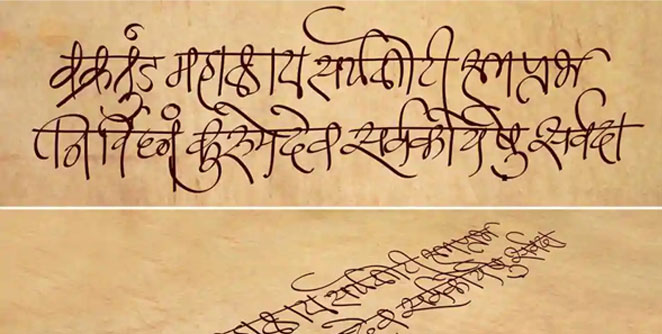 वक्रतुंड महाकाय सूर्यकोटी समप्रभ
निर्विघ्नं कुरुमेदेव सर्वकार्येषु सर्वदा
महाकाय सूर्यकोटी समप्रभ
सर्वकार्येषु सर्वदा